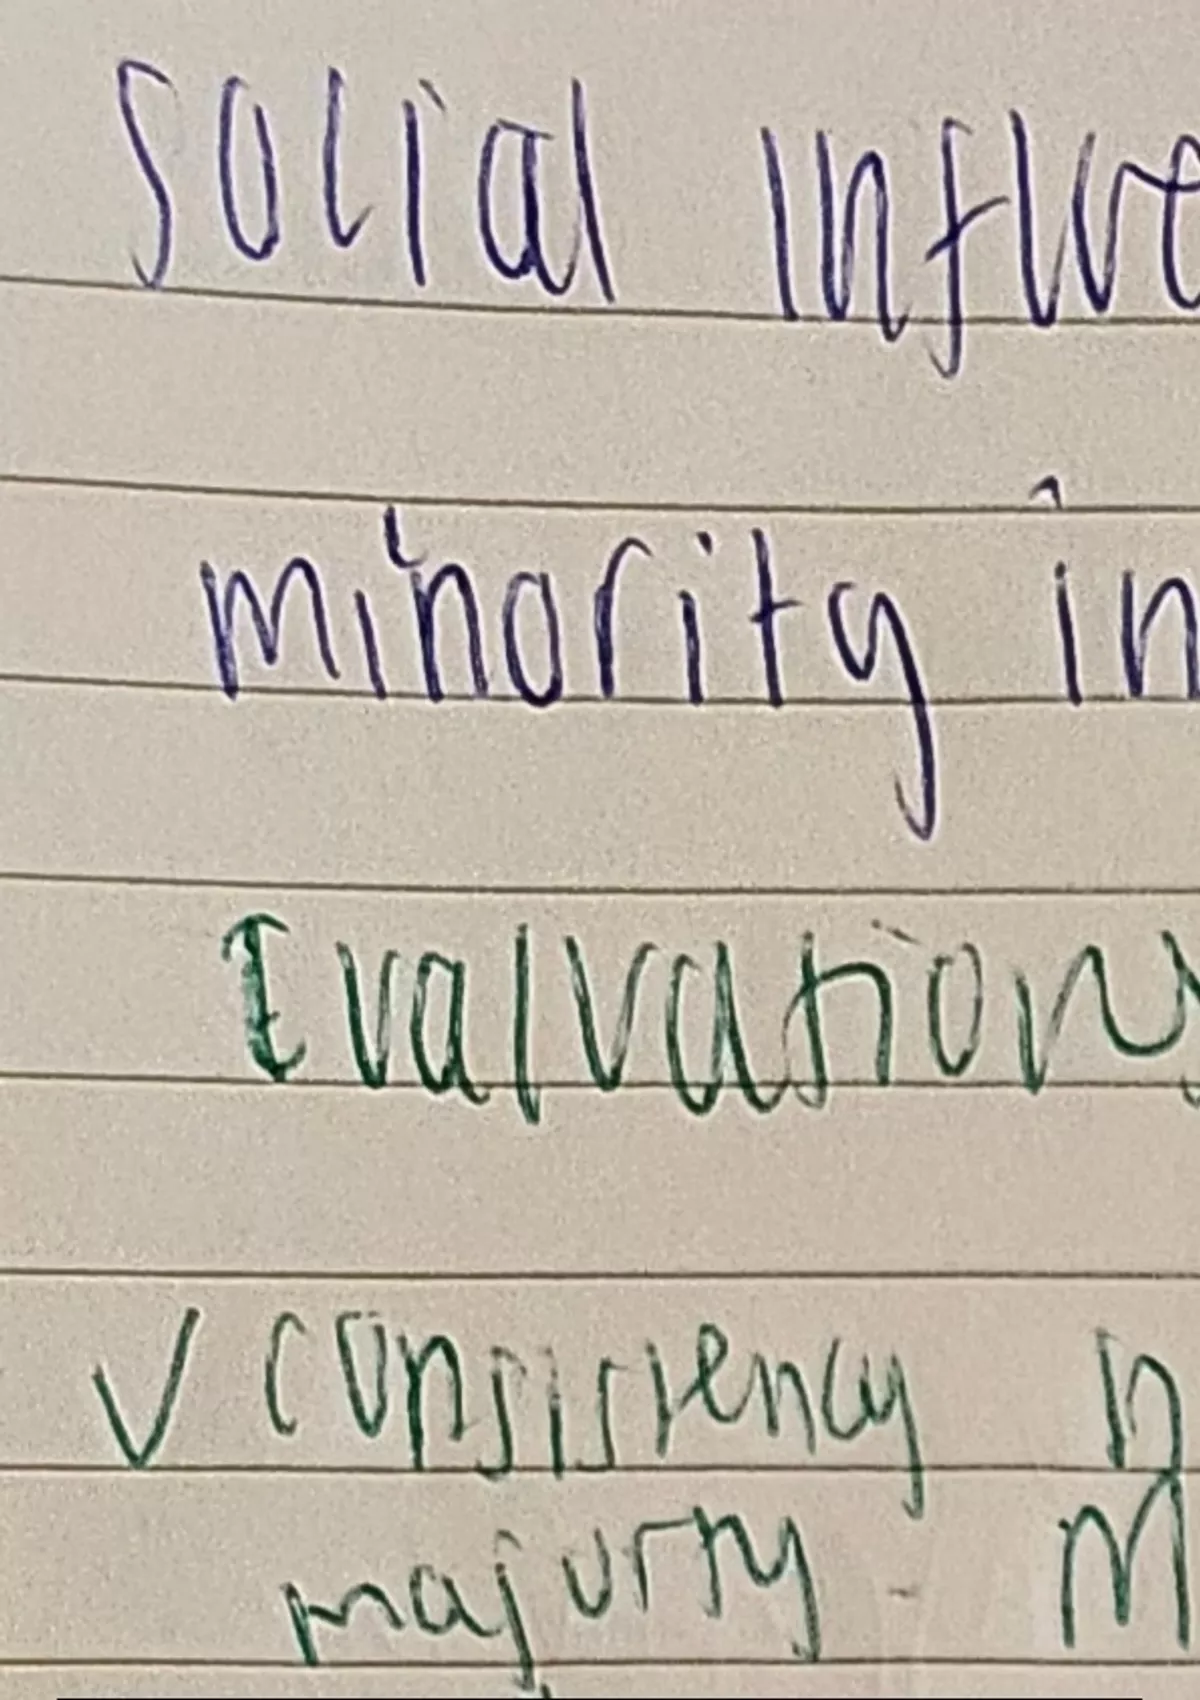 social influe
minority in
Evaluations
✓ consistency n
majority - M